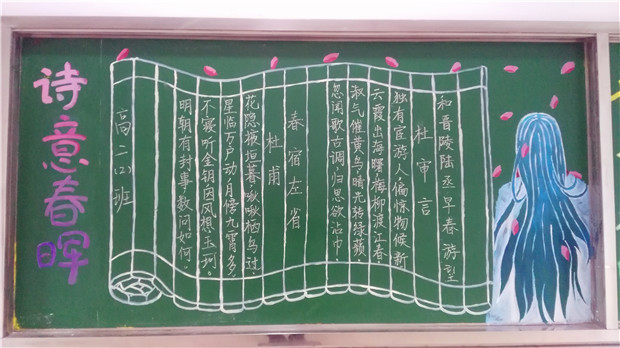 诗意春晖
和晋陵陆丞早春游望
杜审言
独有宦游人,偏惊物候新
云霞出海曙,梅柳渡江春。
淑气催黄鸟,晴光转绿蘋。
忽闻歌古调,归思欲沾巾。
春宿左省
杜甫
花隐掖垣暮,啾啾栖鸟过
星临万户动,月傍九霄多。
不寝听金钥,因风想玉珂。
明朝有封事,数问如何。
高二(2)班